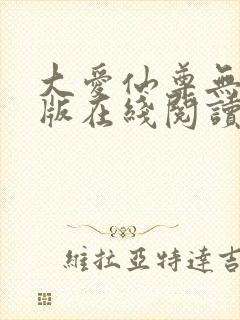 大愛仙尊無
版在綫閱讀
維拉亞特達吉